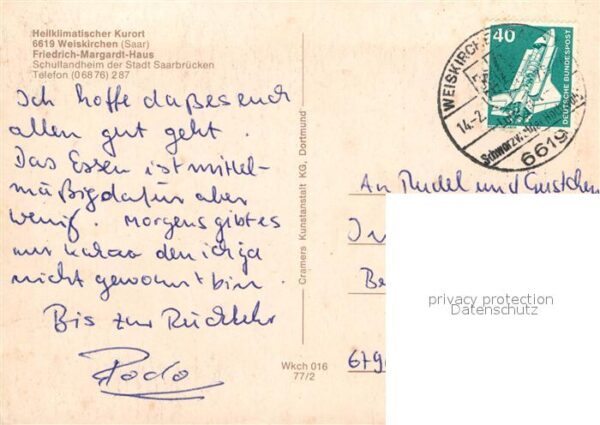 Heilklimatischer Kurort
6619 Weiskirchen (Saar)
Friedrich-Margardt-Haus
Schullandheim der Stadt Saarbrücken
Telefon (0 68 76) 2 87
Ich hoffe daß es euch
allen gut geht.
Das Essen ist mittel-
mäßig dafür aber
wenig. Morgens gibt es
nur Kakao den ich ja
nicht gewohnt bin.
Bis zur Rückkehr
Cramers Kunstanstalt KG, Dortmund
Wkch 016
77/2
40
DEUTSCHE BUNDESPOST
WEISKIRCHE
14.-2.
6619
An Rudel und Gustchen
In
Be
679
privacy protection
Datenschutz